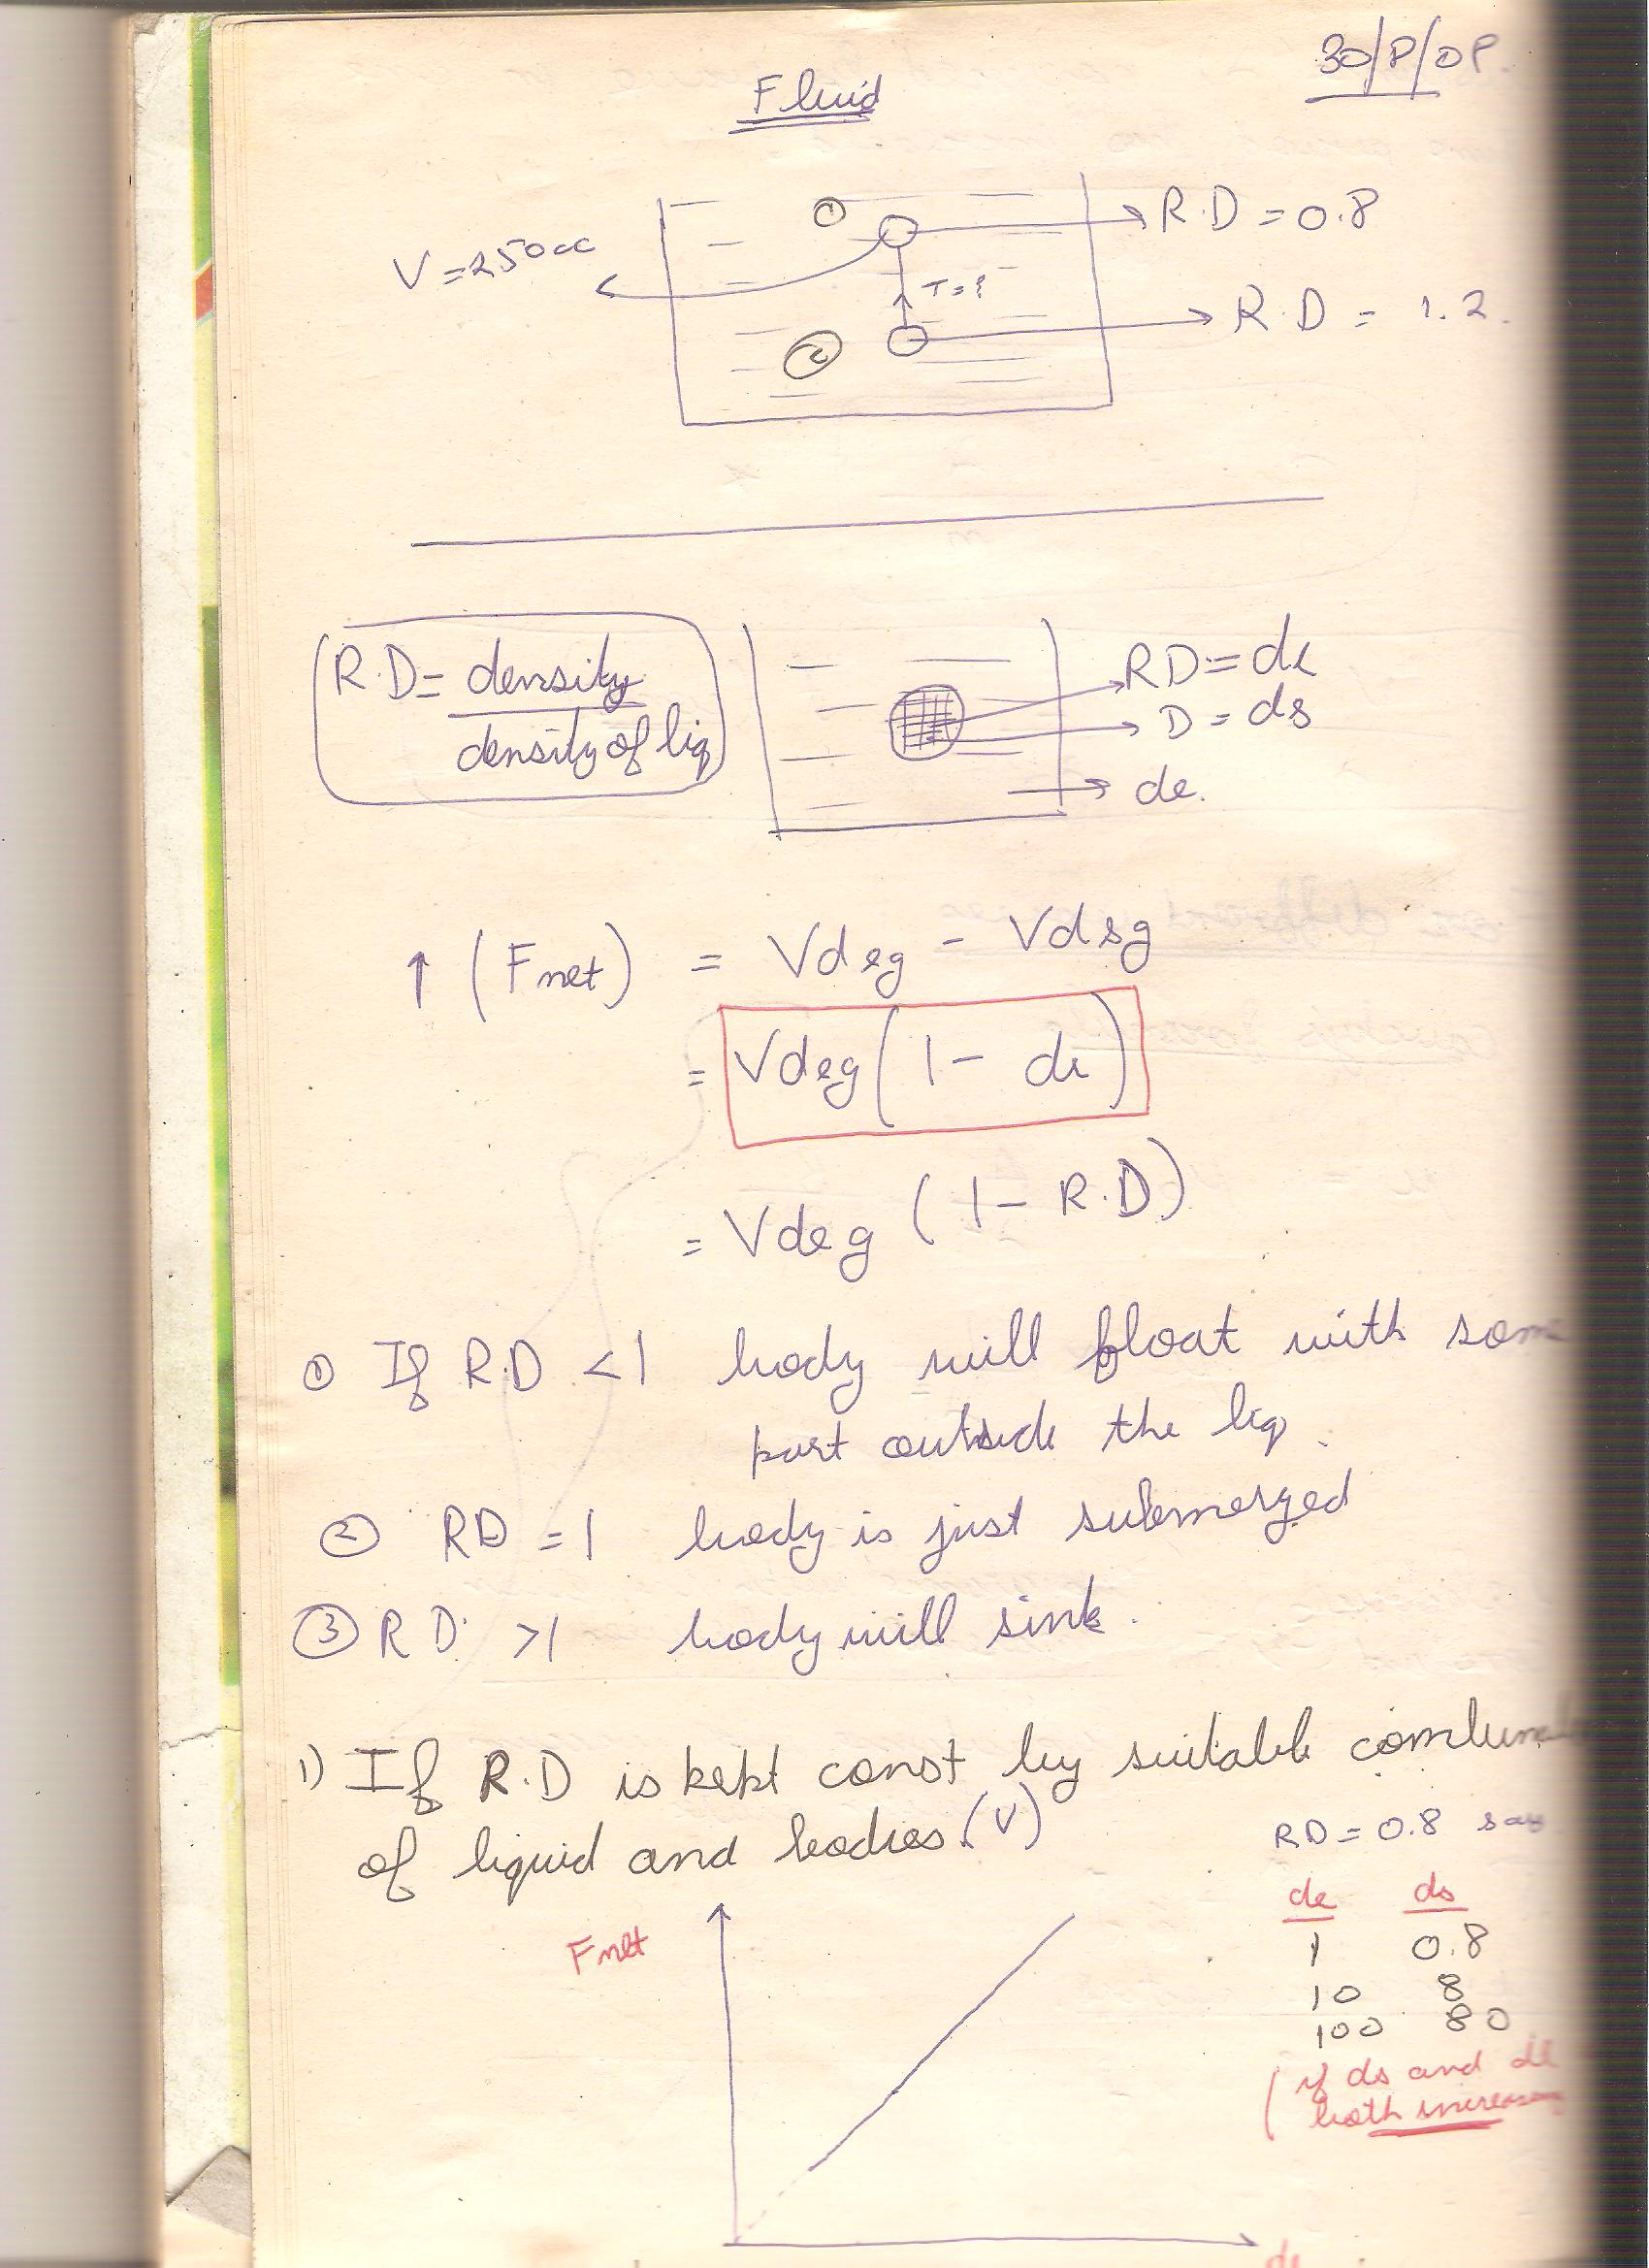 30/8/08.
Fluid
① R.D = 0.8
V = 250cc
T = ?
② R.D = 1.2.
R.D = density / density of liq
RD = dr
D = ds
dl.
↑ (Fnet) = Vdlg - Vdsg
= Vdlg (1 - dr)
= Vdlg (1 - R.D)
① If R.D < 1 body will float with some
part outside the liq.
② RD = 1 body is just submerged
③ R D. > 1 body will sink.
1) If R.D is kept const by suitable
of liquid and bodies. (V)
RD = 0.8 say
Fnet
dl ds
1 0.8
10 8
100 80
(if ds and dl
both increasing
dl